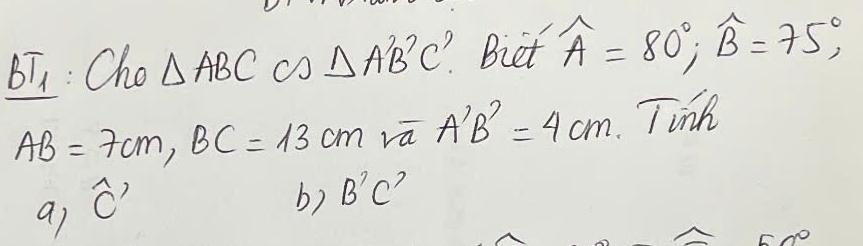 BT1: Cho Δ ABC ᔕ Δ A'B'C'. Biết Â = 80°; B̂ = 75°;
AB = 7cm, BC = 13 cm và A'B' = 4 cm. Tính
a, Ĉ' b) B'C'
50°